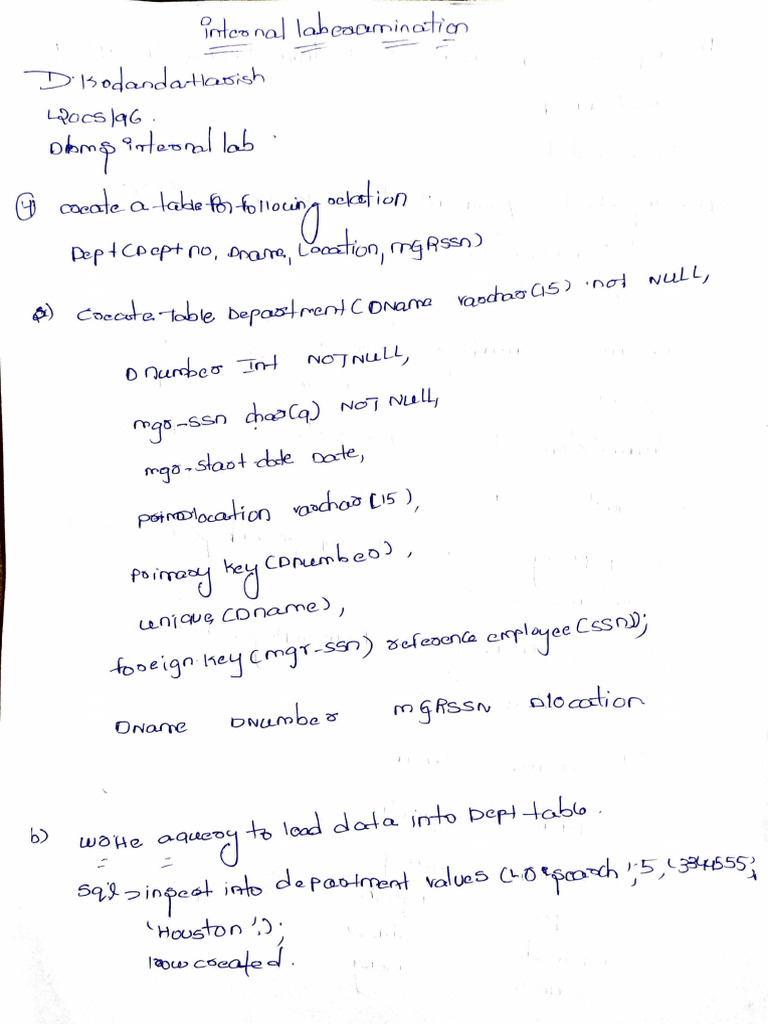 internal lab examination
D. Kodanda Harish
L20CS196.
Dbms internal lab
4) create a table for following relation
Dept (Dept no, Dname, Location, MGRSSN)
a) Create Table Department (DName varchar(15) not NULL,
D number Int NOT NULL,
mgr-SSN char(9) NOT NULL,
mgr-start date Date,
location varchar(15),
primary key (Dnumber),
unique (Dname),
foreign key (mgr-ssn) reference employee (SSN));
Dname DNumber MGRSSN Dlocation
b) write a query to load data into Dept table.
sql> insert into department values ( 5,
'Houston');
1 row created.